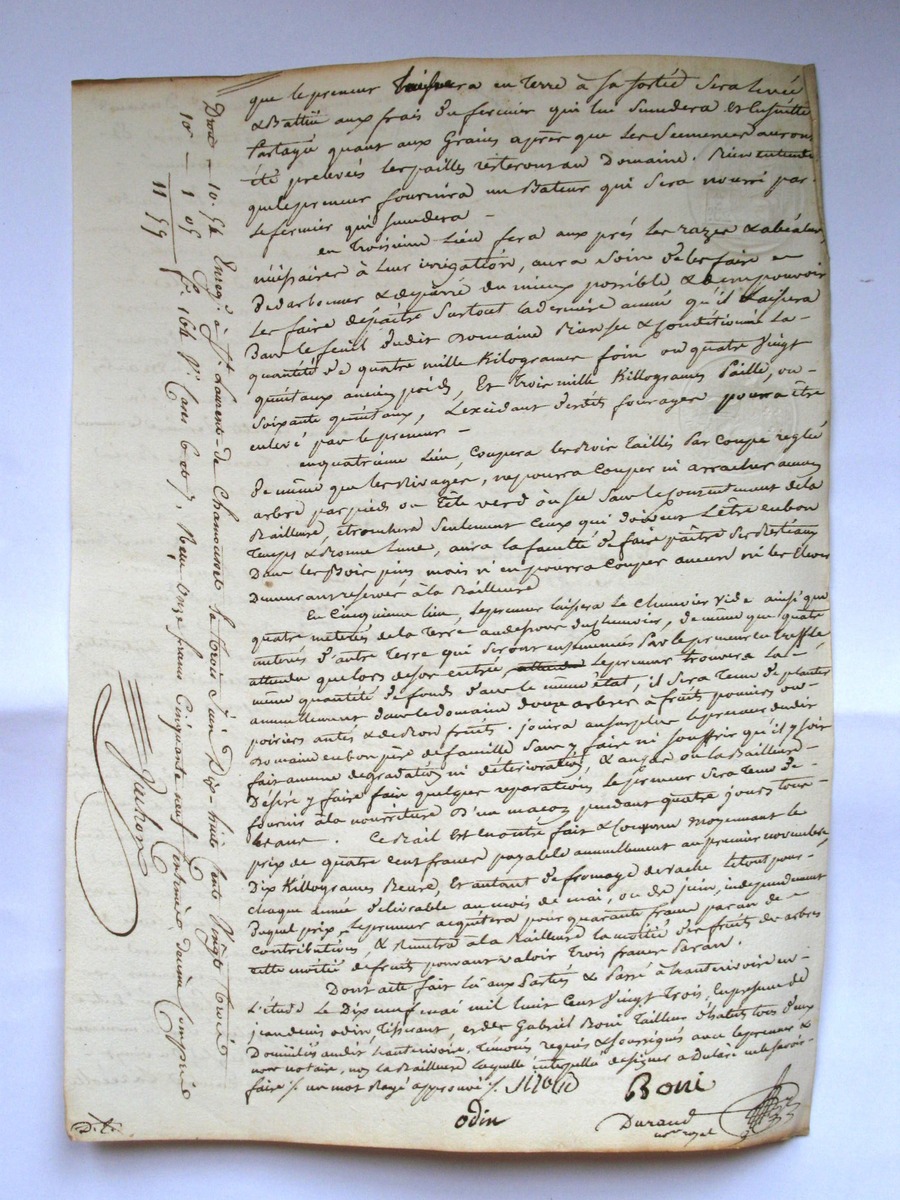 que le preneur laissera en terre à sa sortie sera levée
& Battüe aux frais du fermier qui lui succdera et ensuitte
Partagée quant aux Grains après que les Semences auront
été prelevés les pailles resteront au Domaine. Bien entendu
que le preneur fournira un Bateur qui sera nourri par
le fermier qui succdera –
en Troisieme Lieu fera aux prés les razes &
néssaires à Leur irrigation, aura soin de les faire
& du mieux possible & ne pouvoir
les faire depaitre surtout la derniere année qu'il Laissera
Dans le feuil dudit Domaine Bien sec & Conditionné La
quantité de quatre mille Kilogrames foin ou quatre vingt
quintaux ancien poids, Et Trois mille Killogrames Paille, ou –
soixante quintaux, L'excédant desdits fourages pourra être
enlevé par le preneur –
en quatrieme Lieu, Coupera les Bois Taillis par Coupe reglée
De même que les Rivages, ne pourra couper ni arracher aucun
arbre par pieds ou Tête verd ou sec sans le consentement de la
Bailleuse, etronchera seulement Ceux qui doivent L'être en bon
Temps & Bonne Lune, aura la faculté de faire paître ses Bestiaux
Dans les Bois pins mais n'en pourra Couper aucun ni les Eleves
Demeurant reservés à la Bailleuse
En Cinquieme Lieu, Le preneur laissera Le Chenevier vide ainsi que
quatre meterés de la Terre au dessous du chenevier, de même que quatre
meterés d'autre Terre qui seront ensemencés Par le preneur en treffle
attendu que lors de son entrée attendu Le preneur trouvera La –
même quantité de fonds dans le même état, il sera Tenu de planter
annuellement dans le domaine douze arbres à fruits pomiers ou –
poiriers antés & de Bon fruits. jouira au surplus le preneur dudit
Domaine en bon père de famille sans y faire ni souffrir qu'il y soit
fait aucune degradation ni déterioration, & au cas ou la Bailleuse –
Désire y faire faire quelque reparations, le preneur sera Tenu de –
fournir à la nourriture d'un maçon pendant quatre jours tous –
les ans. Ce Bail Est en outre fait & Convenu moyennant le
prix de quatre cent francs payable annuellement au premier novembre,
Dix Killogrames Beure, Et autant de fromage de vache le tout pour
chaque année délivrable au mois de mai, ou de juin, independament
Duquel prix, Le preneur acquitera pour quarante francs par an de –
contributions, & Remettra à la Bailleuse la moitié des fruits des arbres
cette moitié de fruits pouvant valoir Trois francs Par an.
Dont acte fait Lû aux Parties & Passé à hauterivoire en
L'étude Le Dix neuf mai mil huit Cent Vingt Trois, En presence de
jean denis odin, Tisserant, et de Gabriel Boni Tailleur d'habits tous deux
Domiciliés audit hauterivoire, Témoins requis & soussignés avec le preneur &
nous notaire, non la Bailleuse laquelle interpellée de signer a Declaré ne le savoir
faire /. un mot Rayé approuvé /.
Boni
odin
Durand
not. royal
Enreg. à St Laurent-de Chamousset le trois Juin Dix-huit cent Vingt trois
f. 164 V° Cases 6 et 7, Reçu onze francs Cinquante neuf centimes, decime compris
Droit – 10. 54
10e – 1 05
11 59